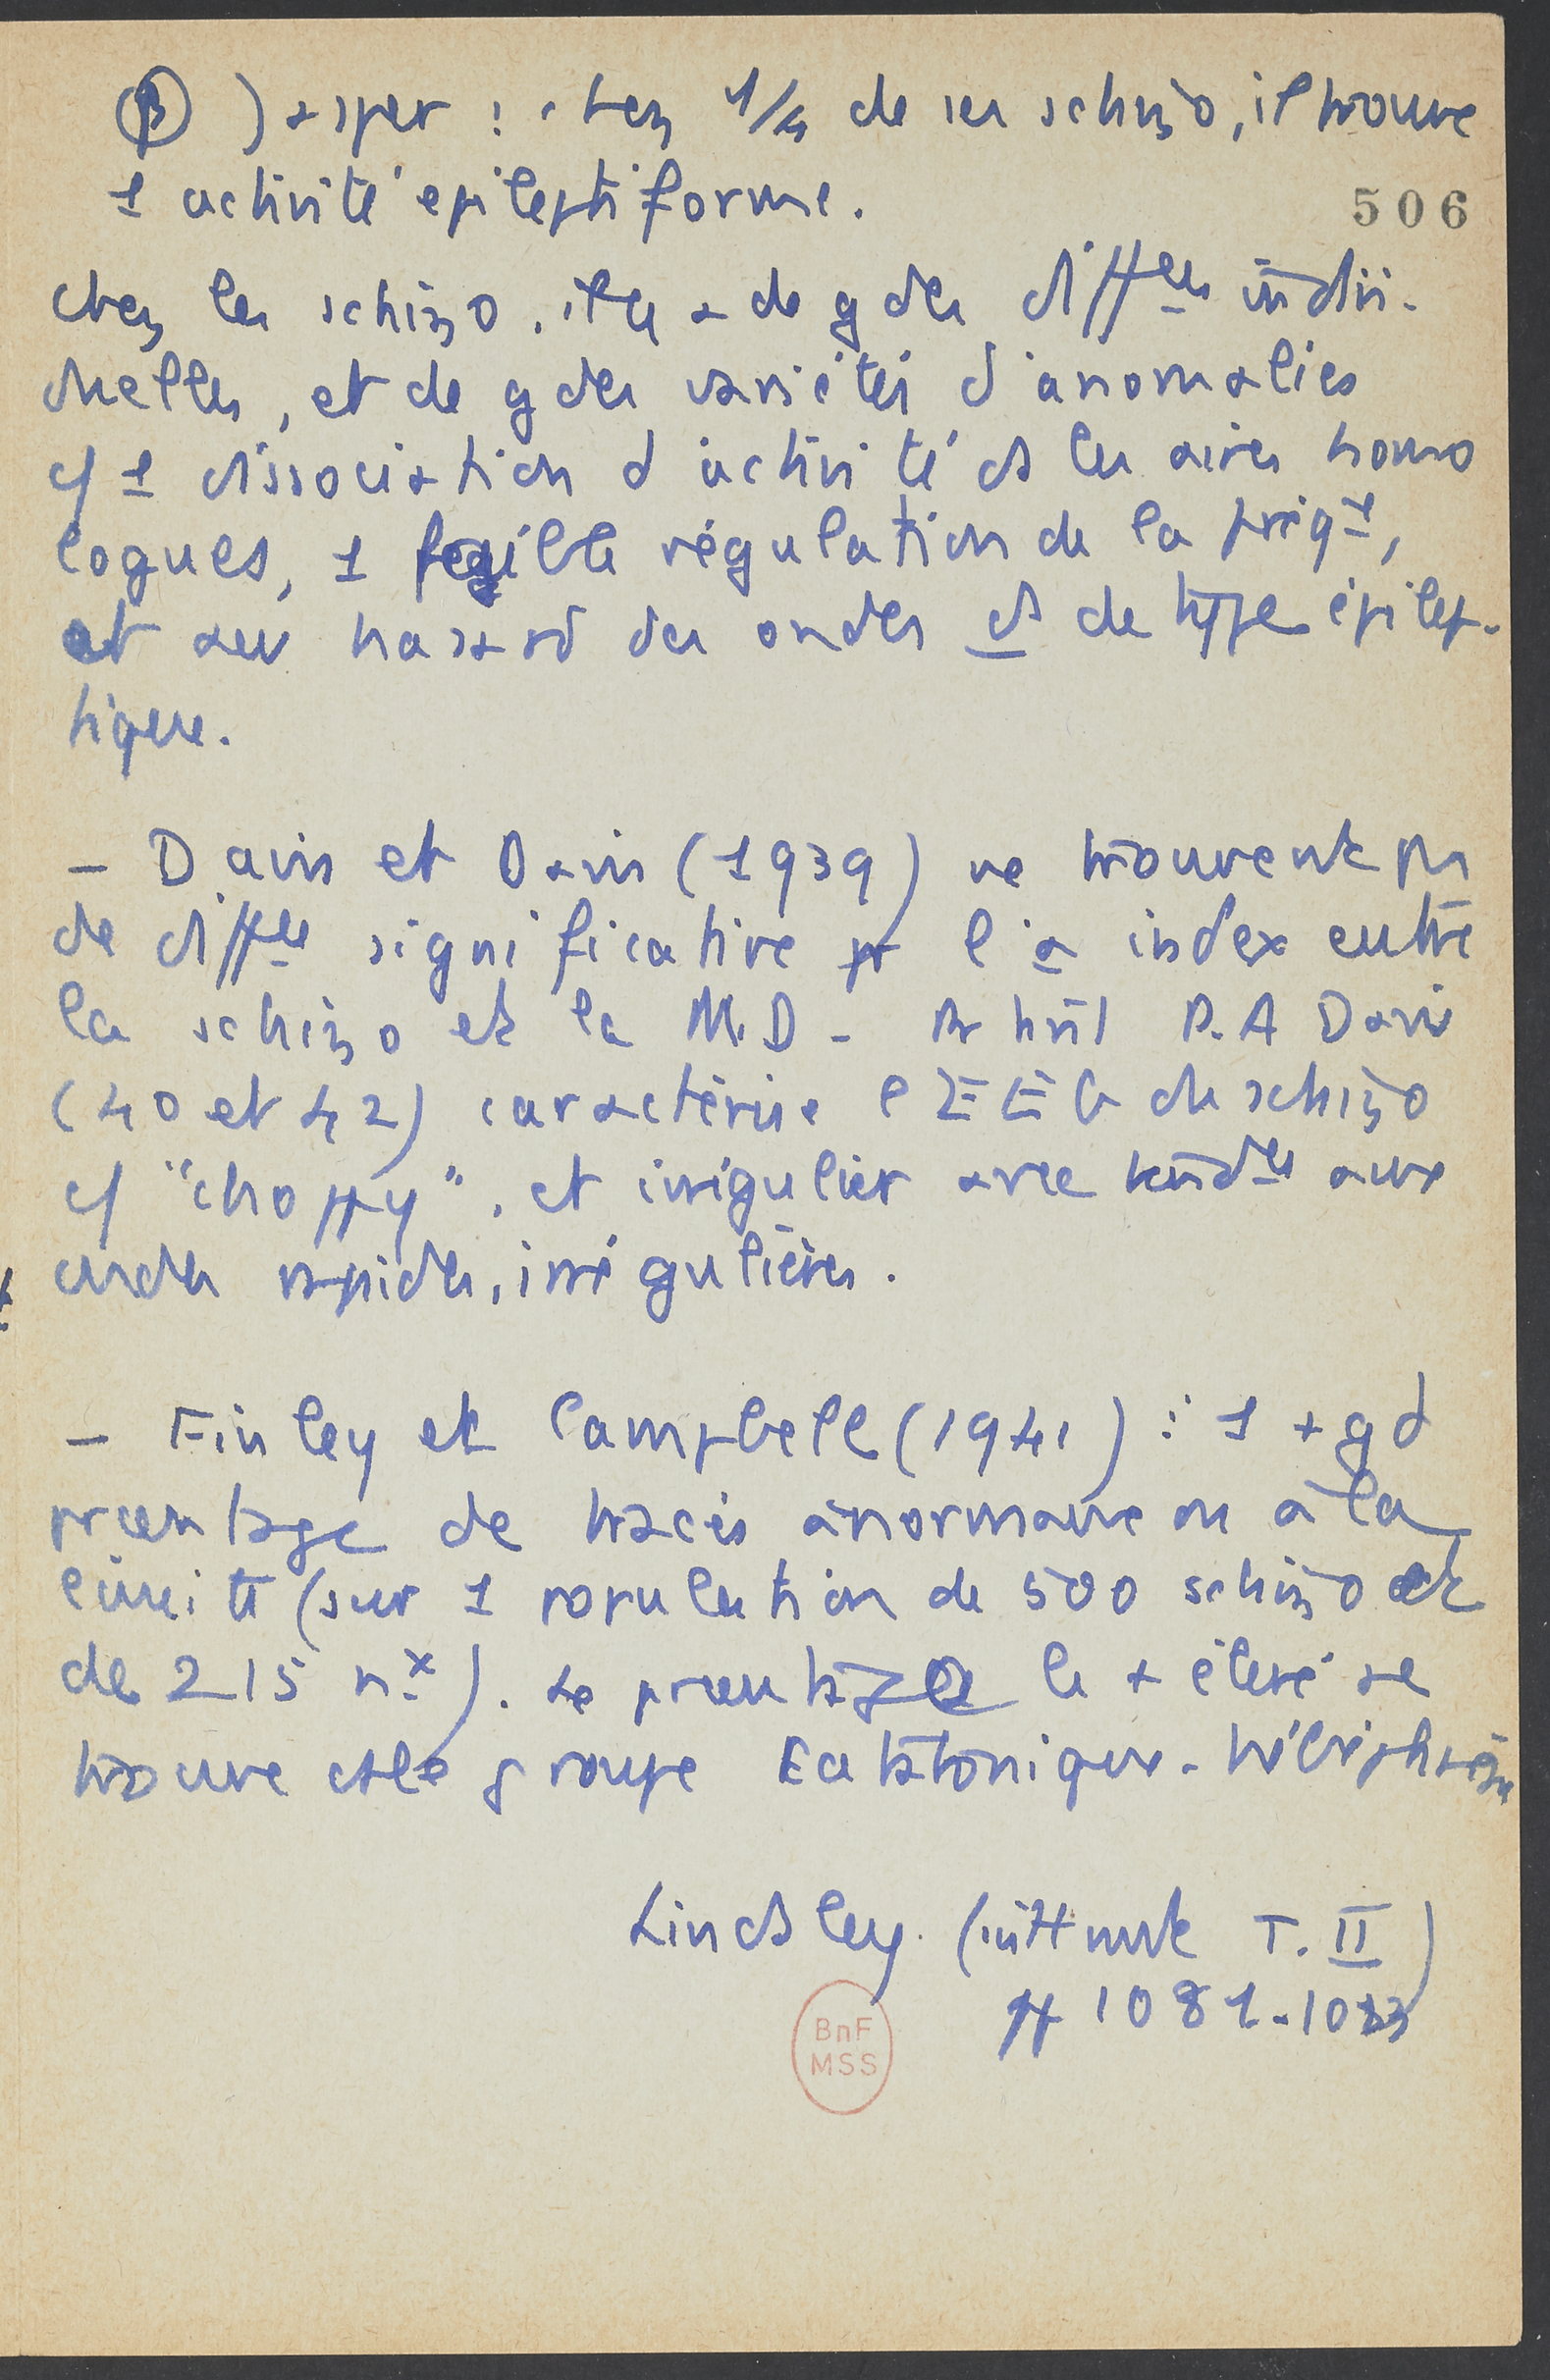 (B) Jasper : chez 1/4 de ses schizo, il trouve
1 activité épileptiforme.
506
chez les schizo. il y a de gdes diffces indivi-
duelles, et de gdes variétés d'anomalies
cf 1 dissociation d'activité ds les aires homo
logues, 1 faible régulation de la fréqce,
et au hasard des ondes ds de type épilep-
tique.
- Davis et Davis (1939) ne trouvent pas
de diffce significative pr l'α index entre
la schizo et la M.D - P.A Davis
(40 et 42) caractérise l'EEG du schizo
cf "choppy", et irrégulier avec tendce aux
ondes rapides, irrégulières.
- Finley et Campbell (1941) : 1 + gd
prcentage de tracés anormaux ou à la
limite (sur 1 population de 500 schizo et
de 215 nx). Le prcentage le + élevé se
trouve ds le groupe catatonique - hébéphrénie
Lindsley. (in Hunt T. II)
pp 1081-1083
BnF
MSS